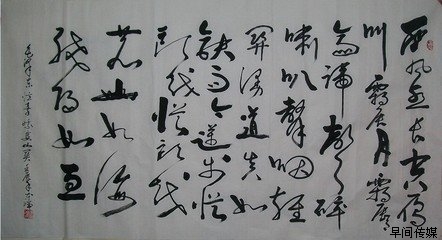 西风烈长空雁
叫霜晨月霜晨月
马蹄声碎
喇叭声咽雄
关漫道真如
铁而今迈步从
头越从头越
苍山如海
残阳如血
毛泽东忆秦娥娄山关
早间传媒